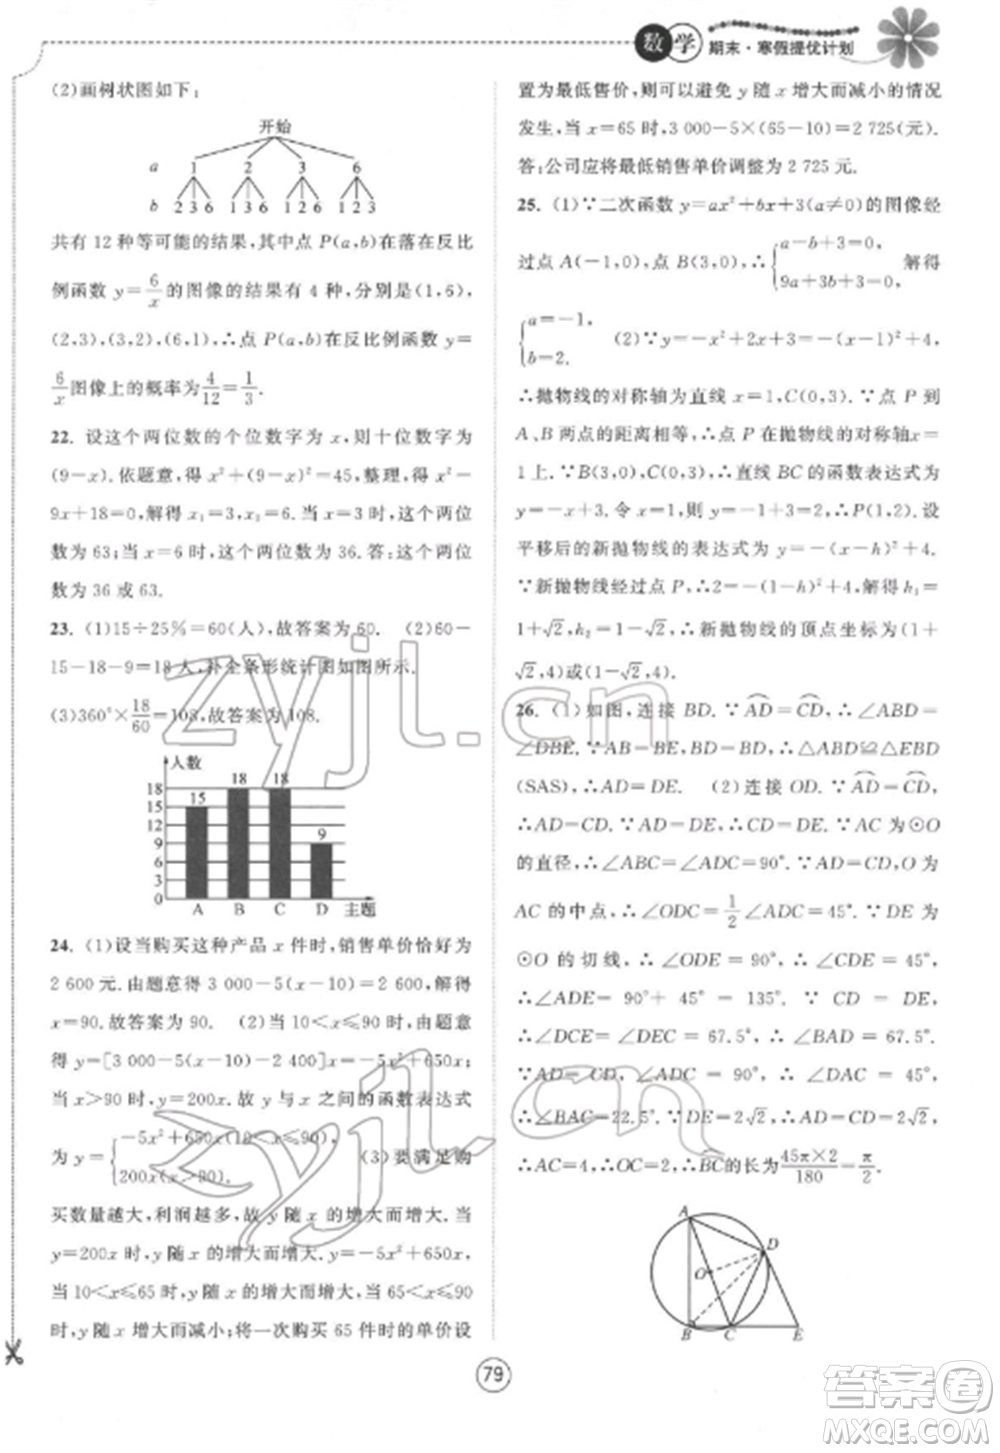 数学 期末·寒假提优计划
(2)画树状图如下:
开始
a 1 2 3 6
b 2 3 6 1 3 6 1 2 6 1 2 3
共有 12 种等可能的结果,其中点 P(a,b)在落在反比
例函数 y=6/x的图像的结果有 4 种,分别是(1,6),
(2,3),(3,2),(6,1),∴点 P(a,b)在反比例函数 y=
6/x图像上的概率为4/12=1/3.
22. 设这个两位数的个位数字为 x,则十位数字为
(9-x).依题意,得 x²+(9-x)²=45,整理,得 x²-
9x+18=0,解得 x₁=3,x₂=6.当 x=3 时,这个两位
数为 63;当 x=6 时,这个两位数为 36.答:这个两位
数为 36 或 63.
23. (1)15÷25%=60(人),故答案为 60. (2)60-
15-18-9=18 人,补全条形统计图如图所示.
(3)360°×18/60=108,故答案为 108.
人数
18
15
12
9
6
3
0
15 18 18 9
A B C D 主题
24. (1)设当购买这种产品 x 件时,销售单价恰好为
2 600 元.由题意得 3 000-5(x-10)=2 600,解得
x=90.故答案为 90. (2)当 10<x≤90 时,由题意
得 y=[3 000-5(x-10)-2 400]x=-5x²+650x;
当 x>90 时,y=200x.故 y 与 x 之间的函数表达式
为 y={-5x²+650x(10<x≤90),
200x(x>90). (3)要满足购
买数量越大,利润越多,故 y 随 x 的增大而增大.当
y=200x 时,y 随 x 的增大而增大;y=-5x²+650x,
当 10<x≤65 时,y 随 x 的增大而增大,当 65<x≤90
时,y 随 x 增大而减小;将一次购买 65 件时的单价设
置为最低售价,则可以避免 y 随 x 增大而减小的情况
发生,当 x=65 时,3 000-5×(65-10)=2 725(元).
答:公司应将最低销售单价调整为 2 725 元.
25. (1)∵二次函数 y=ax²+bx+3(a≠0)的图像经
过点 A(-1,0),点 B(3,0),∴{a-b+3=0,
9a+3b+3=0, 解得
{a=-1,
b=2. (2)∵y=-x²+2x+3=-(x-1)²+4,
∴抛物线的对称轴为直线 x=1,C(0,3).∵点 P 到
A、B 两点的距离相等,∴点 P 在抛物线的对称轴x=
1 上.∵B(3,0),C(0,3),∴直线 BC 的函数表达式为
y=-x+3.令 x=1,则 y=-1+3=2,∴P(1,2).设
平移后的新抛物线的表达式为 y=-(x-h)²+4.
∵新抛物线经过点 P,∴2=-(1-h)²+4,解得 h₁=
1+√2,h₂=1-√2,∴新抛物线的顶点坐标为(1+
√2,4)或(1-√2,4).
26. (1)如图,连接 BD.∵A͡D=C͡D,∴∠ABD=
∠DBE.∵AB=BE,BD=BD,∴△ABD≌△EBD
(SAS),∴AD=DE. (2)连接 OD.∵A͡D=C͡D,
∴AD=CD.∵AD=DE,∴CD=DE.∵AC 为⊙O
的直径,∴∠ABC=∠ADC=90°.∵AD=CD,O 为
AC 的中点,∴∠ODC=1/2∠ADC=45°.∵DE 为
⊙O 的切线,∴∠ODE=90°,∴∠CDE=45°,
∴∠ADE = 90° + 45° = 135°. ∵ CD = DE,
∴∠DCE=∠DEC=67.5°,∴∠BAD=67.5°.
∵AD=CD,∠ADC=90°,∴∠DAC=45°,
∴∠BAC=22.5°.∵DE=2√2,∴CD=2√2,
∴AC=4,∴OC=2,∴BC的长为45π×2/180=π/2.
A
D
O
B C E
79
zyjl.cn
zyjl.cn
答案圈
MXQE.COM